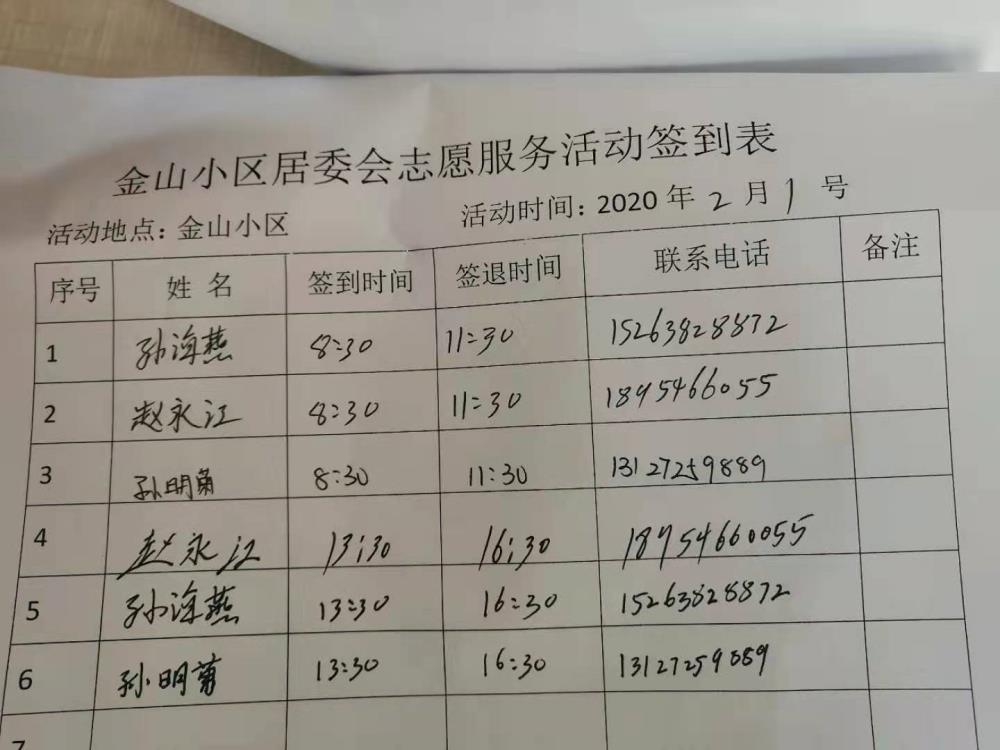 金山小区居委会志愿服务活动签到表
活动地点：金山小区 活动时间：2020 年 2 月 1 号
序号 姓名 签到时间 签退时间 联系电话 备注
1 孙海燕 8:30 11:30 15263828872
2 赵永江 8:30 11:30 1895466055
3 孙明 8:30 11:30 13127259889
4 赵永江 13:30 16:30 18954660055
5 孙海燕 13:30 16:30 15263828872
6 孙明 13:30 16:30 13127259889
7